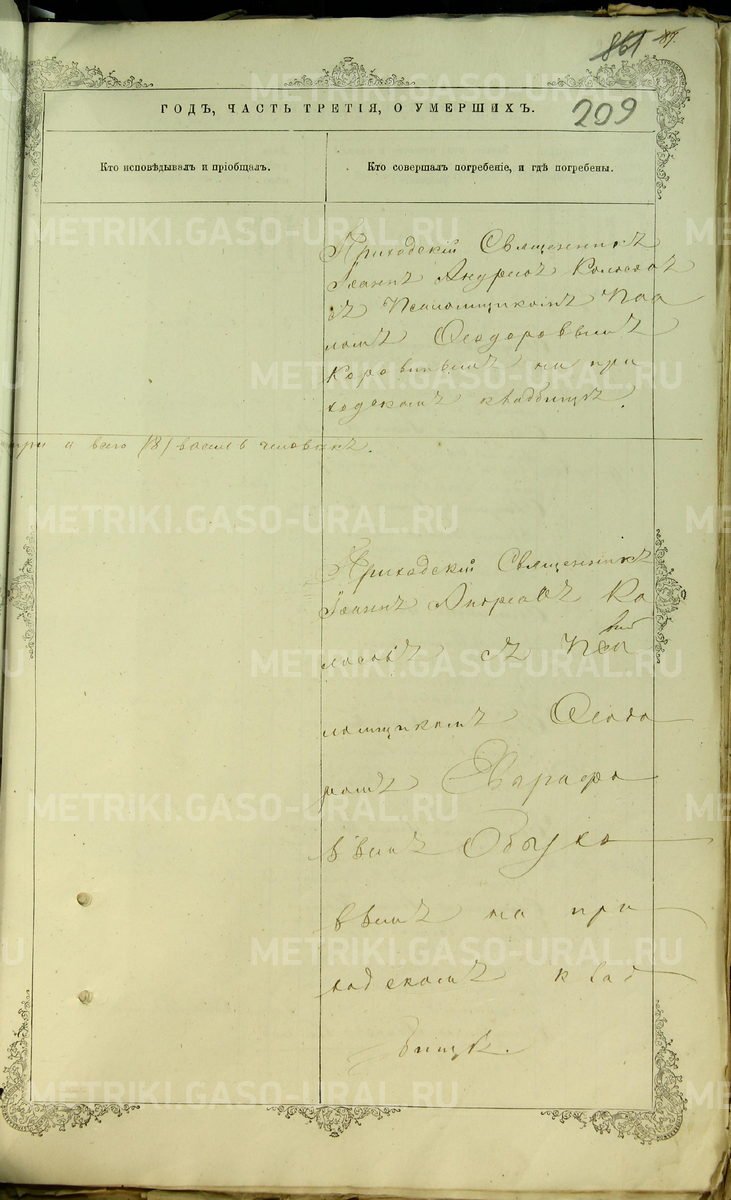 209
ГОДЪ, ЧАСТЬ ТРЕТІЯ, О УМЕРШИХЪ.
Кто исповѣдывалъ и пріобщалъ.
Кто совершалъ погребеніе, и гдѣ погребены.
Приходскій Священникъ
Іоаннъ Андреевъ Колосовъ
съ Псаломщикомъ Пав
ломъ Ѳеодоровымъ
на при
ходскомъ кладбищѣ.
три а всего (8) восемь человѣкъ.
Приходскій Священникъ
Іоаннъ Андреевъ Ко
лосовъ съ Пса
ломщикомъ Ѳеодо
ромъ
вымъ Обухо
вымъ на при
ходскомъ клад
бищѣ.
METRIKI.GASO-URAL.RU